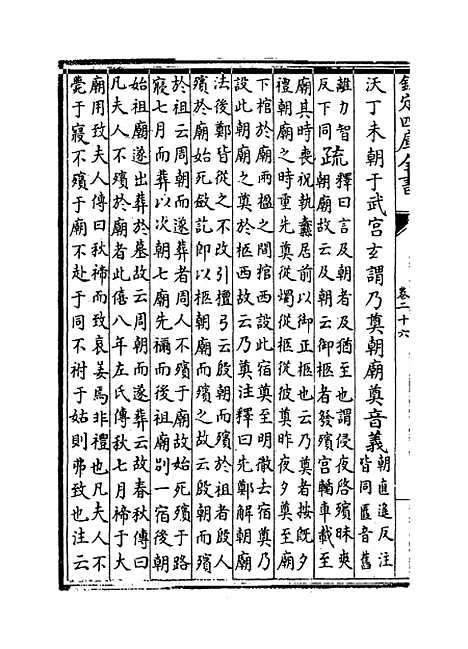 欽定四庫全書
卷二十六
沃丁未朝于武宮玄謂乃奠朝廟奠音義
朝直遥反注
皆同匶音舊
離力智
反下同
疏釋曰言及朝者及猶至也謂侵夜啓殯昧爽
朝廟故云及朝云御柩者發殯宮輴車載至
廟其時喪祝執纛居前以御正柩也云乃奠者按既夕
禮朝廟之時重先奠從燭從柩從彼奠昨夜夕奠至廟
下棺於廟兩楹之間棺西設此宿奠至明徹去宿奠乃
設此朝廟之奠於柩西故云乃奠注釋曰先鄭解朝廟
法後鄭皆從之不改引檀弓云殷朝而殯於祖者殷人
殯於廟始死斂訖即以柩朝廟而殯之故云殷朝而殯
於祖云周朝而遂葬者周人不殯于廟故始死殯于路
寢七月而葬以次朝七廟先禰而後祖廟别一宿後朝
始祖廟遂出葬於墓故云周朝而遂葬云故春秋傳曰
凡夫人不殯於廟者此僖八年左氏傳秋七月禘于大
廟用致夫人傳曰秋禘而致哀姜焉非禮也凡夫人不
薨于寢不殯于廟不赴于同不祔于姑則弗致也注云